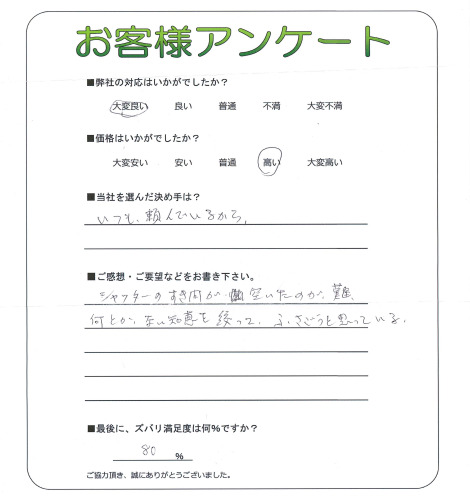 お客様アンケート
■弊社の対応はいかがでしたか？
大変良い 良い 普通 不満 大変不満
■価格はいかがでしたか？
大変安い 安い 普通 高い 大変高い
■当社を選んだ決め手は？
いつも、頼んでいるから。
■ご感想・ご要望などをお書き下さい。
シャッターのすき間が 空いたのが、難、
何とか、ない知恵を絞って、ふさごうと思っている。
■最後に、ズバリ満足度は何％ですか？
80 ％
ご協力頂き、誠にありがとうございました。